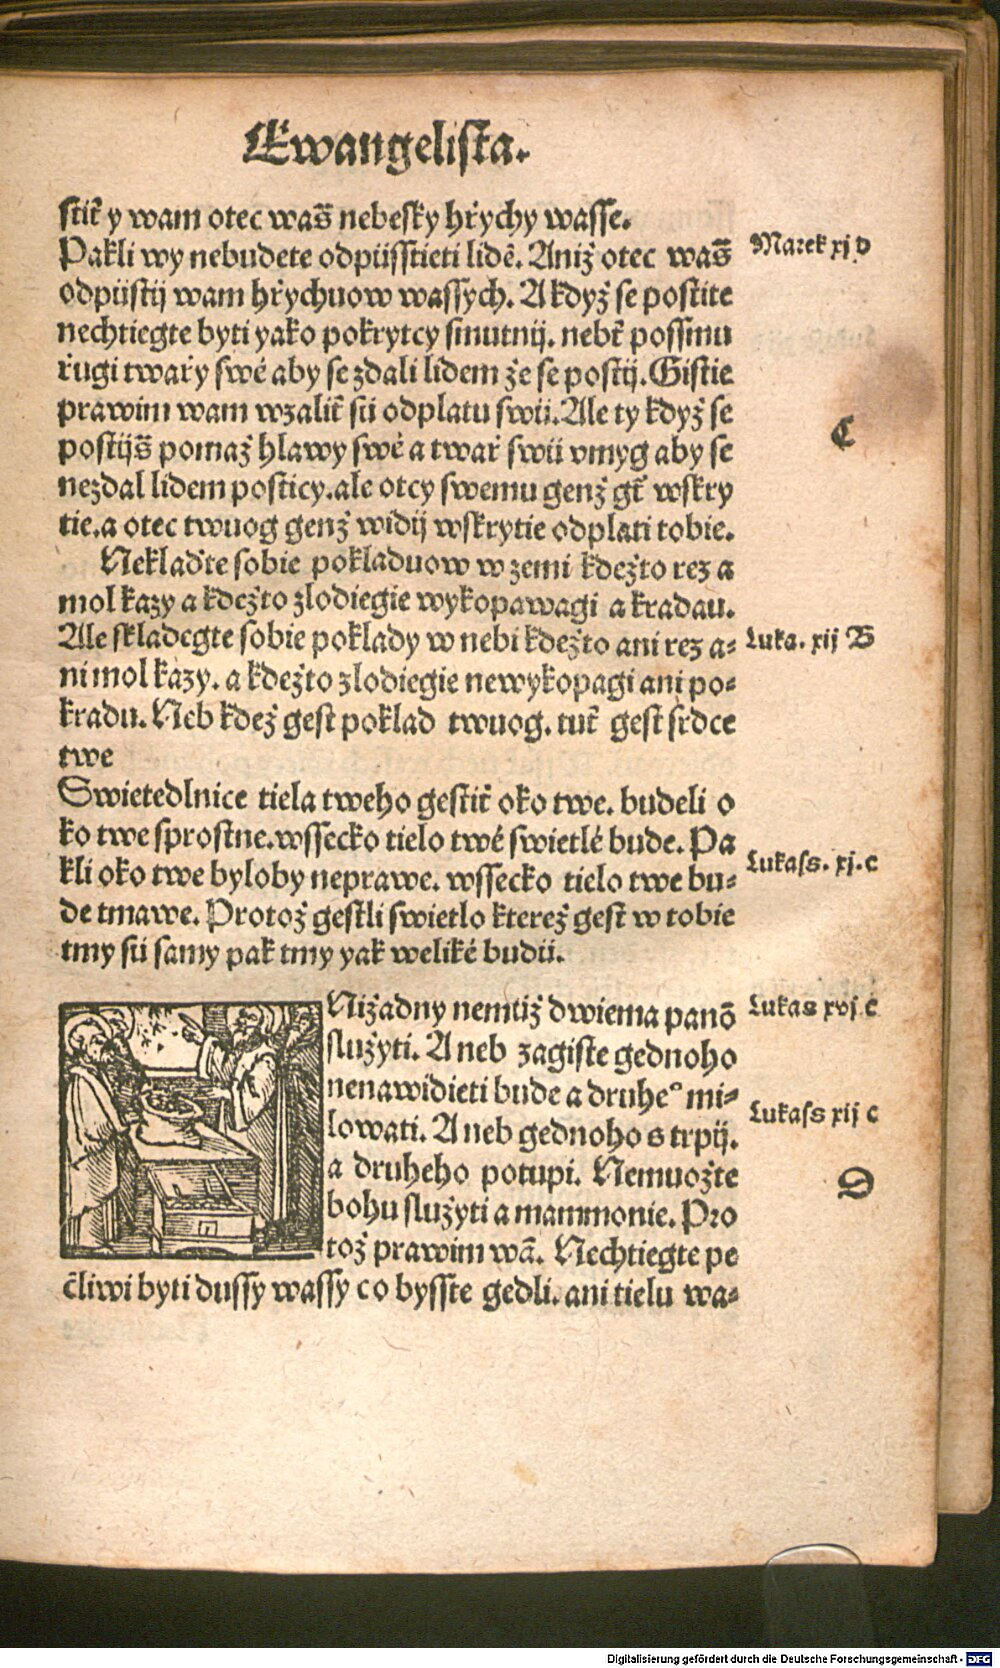 Ewangelista.
stit̃ y wam otec wass̃ nebesky hřychy wasse.
Pakli wy nebudete odpüsstieti lidẽ. Aniž otec wass̃
Marek xj D
odpüstij wam hřychuow wassych. A když se postite
nechtiegte byti yako pokrytcy smutnij. neb̃t possmu
rugi twařy swé aby se zdali lidem že se postij. Gistie
prawim wam wzalit̃ sü odplatu swü. Ale ty když se
C
postijs̃ pomaž hlawy swé a twař swü vmyg aby se
nezdal lidem posticy. ale otcy swemu genž gt̃ wskry
tie. a otec twuog genž widij wskrytie odplati tobie.
Neklaďte sobie pokladuow w zemi kdežto rez a
mol kazy a kdežto zlodiegie wykopawagi a kradau.
Ale skladegte sobie poklady w nebi kdežto ani rez a⸗
Luka. xij B
ni mol kazy. a kdežto zlodiegie newykopagi ani po⸗
kradu. Neb kdež gest poklad twuog. tut̃ gest srdce
twe
Swietedlnice tiela tweho gestit̃ oko twe. budeli o
ko twe sprostne. wssecko tielo twé swietlé bude. Pa
Lukass. xj. c
kli oko twe byloby neprawe. wssecko tielo twe bu⸗
de tmawe. Protož gestli swietlo kterež gest w tobie
tmy sü samy pak tmy yak weliké budü.
Nižadny nemüž dwiema panõ
Lukas xvj c
služyti. A neb zagiste gednoho
nenawidieti bude a druhe° mi⸗
Lukass xij c
lowati. A neb gednoho s trpij.
a druheho potupi. Nemuožte
D
bohu služyti a mammonie. Pro
tož prawim wã. Nechtiegte pe
čliwi byti dussy wassy co bysste gedli. ani tielu wa⸗
Digitalisierung gefördert durch die Deutsche Forschungsgemeinschaft - DFG